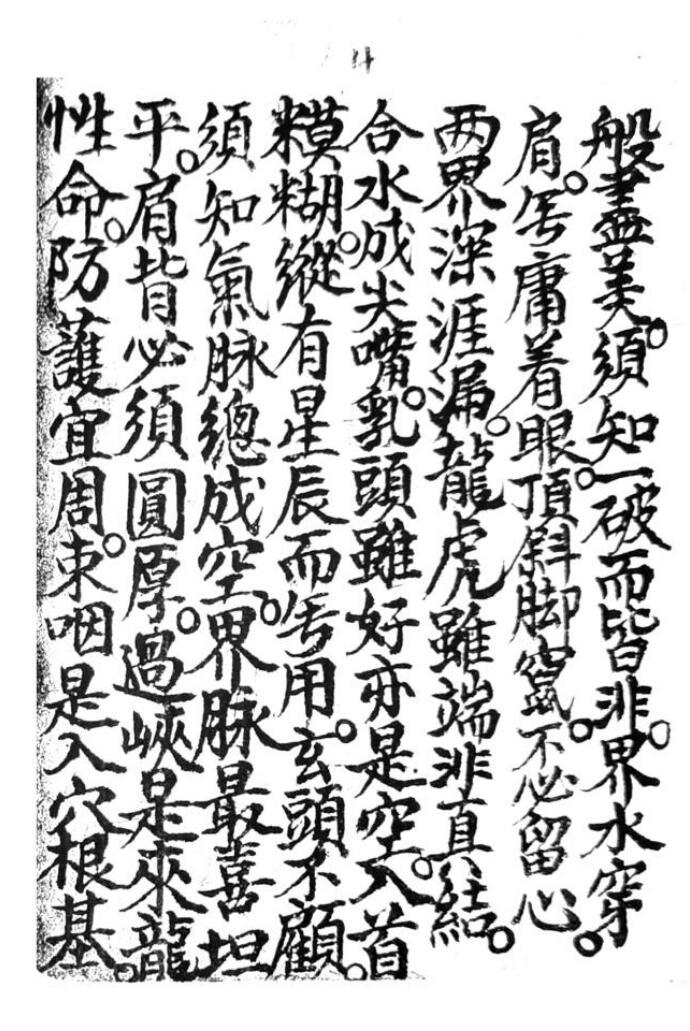 般盡美。須知一破而皆非。界水穿
肩。无庸着眼。頂斜脚竄。不必留心。
两界深涯漏。龍虎雖端非真結。
合水成尖嘴。乳頭雖好亦是空。入首
糢糊。縱有星辰而无用。玄頭不顧。
須知氣脉總成空。界脉最喜坦
平。肩背必須圓厚。過峽是來龍
性命。防護宜周。束咽是入穴根基。